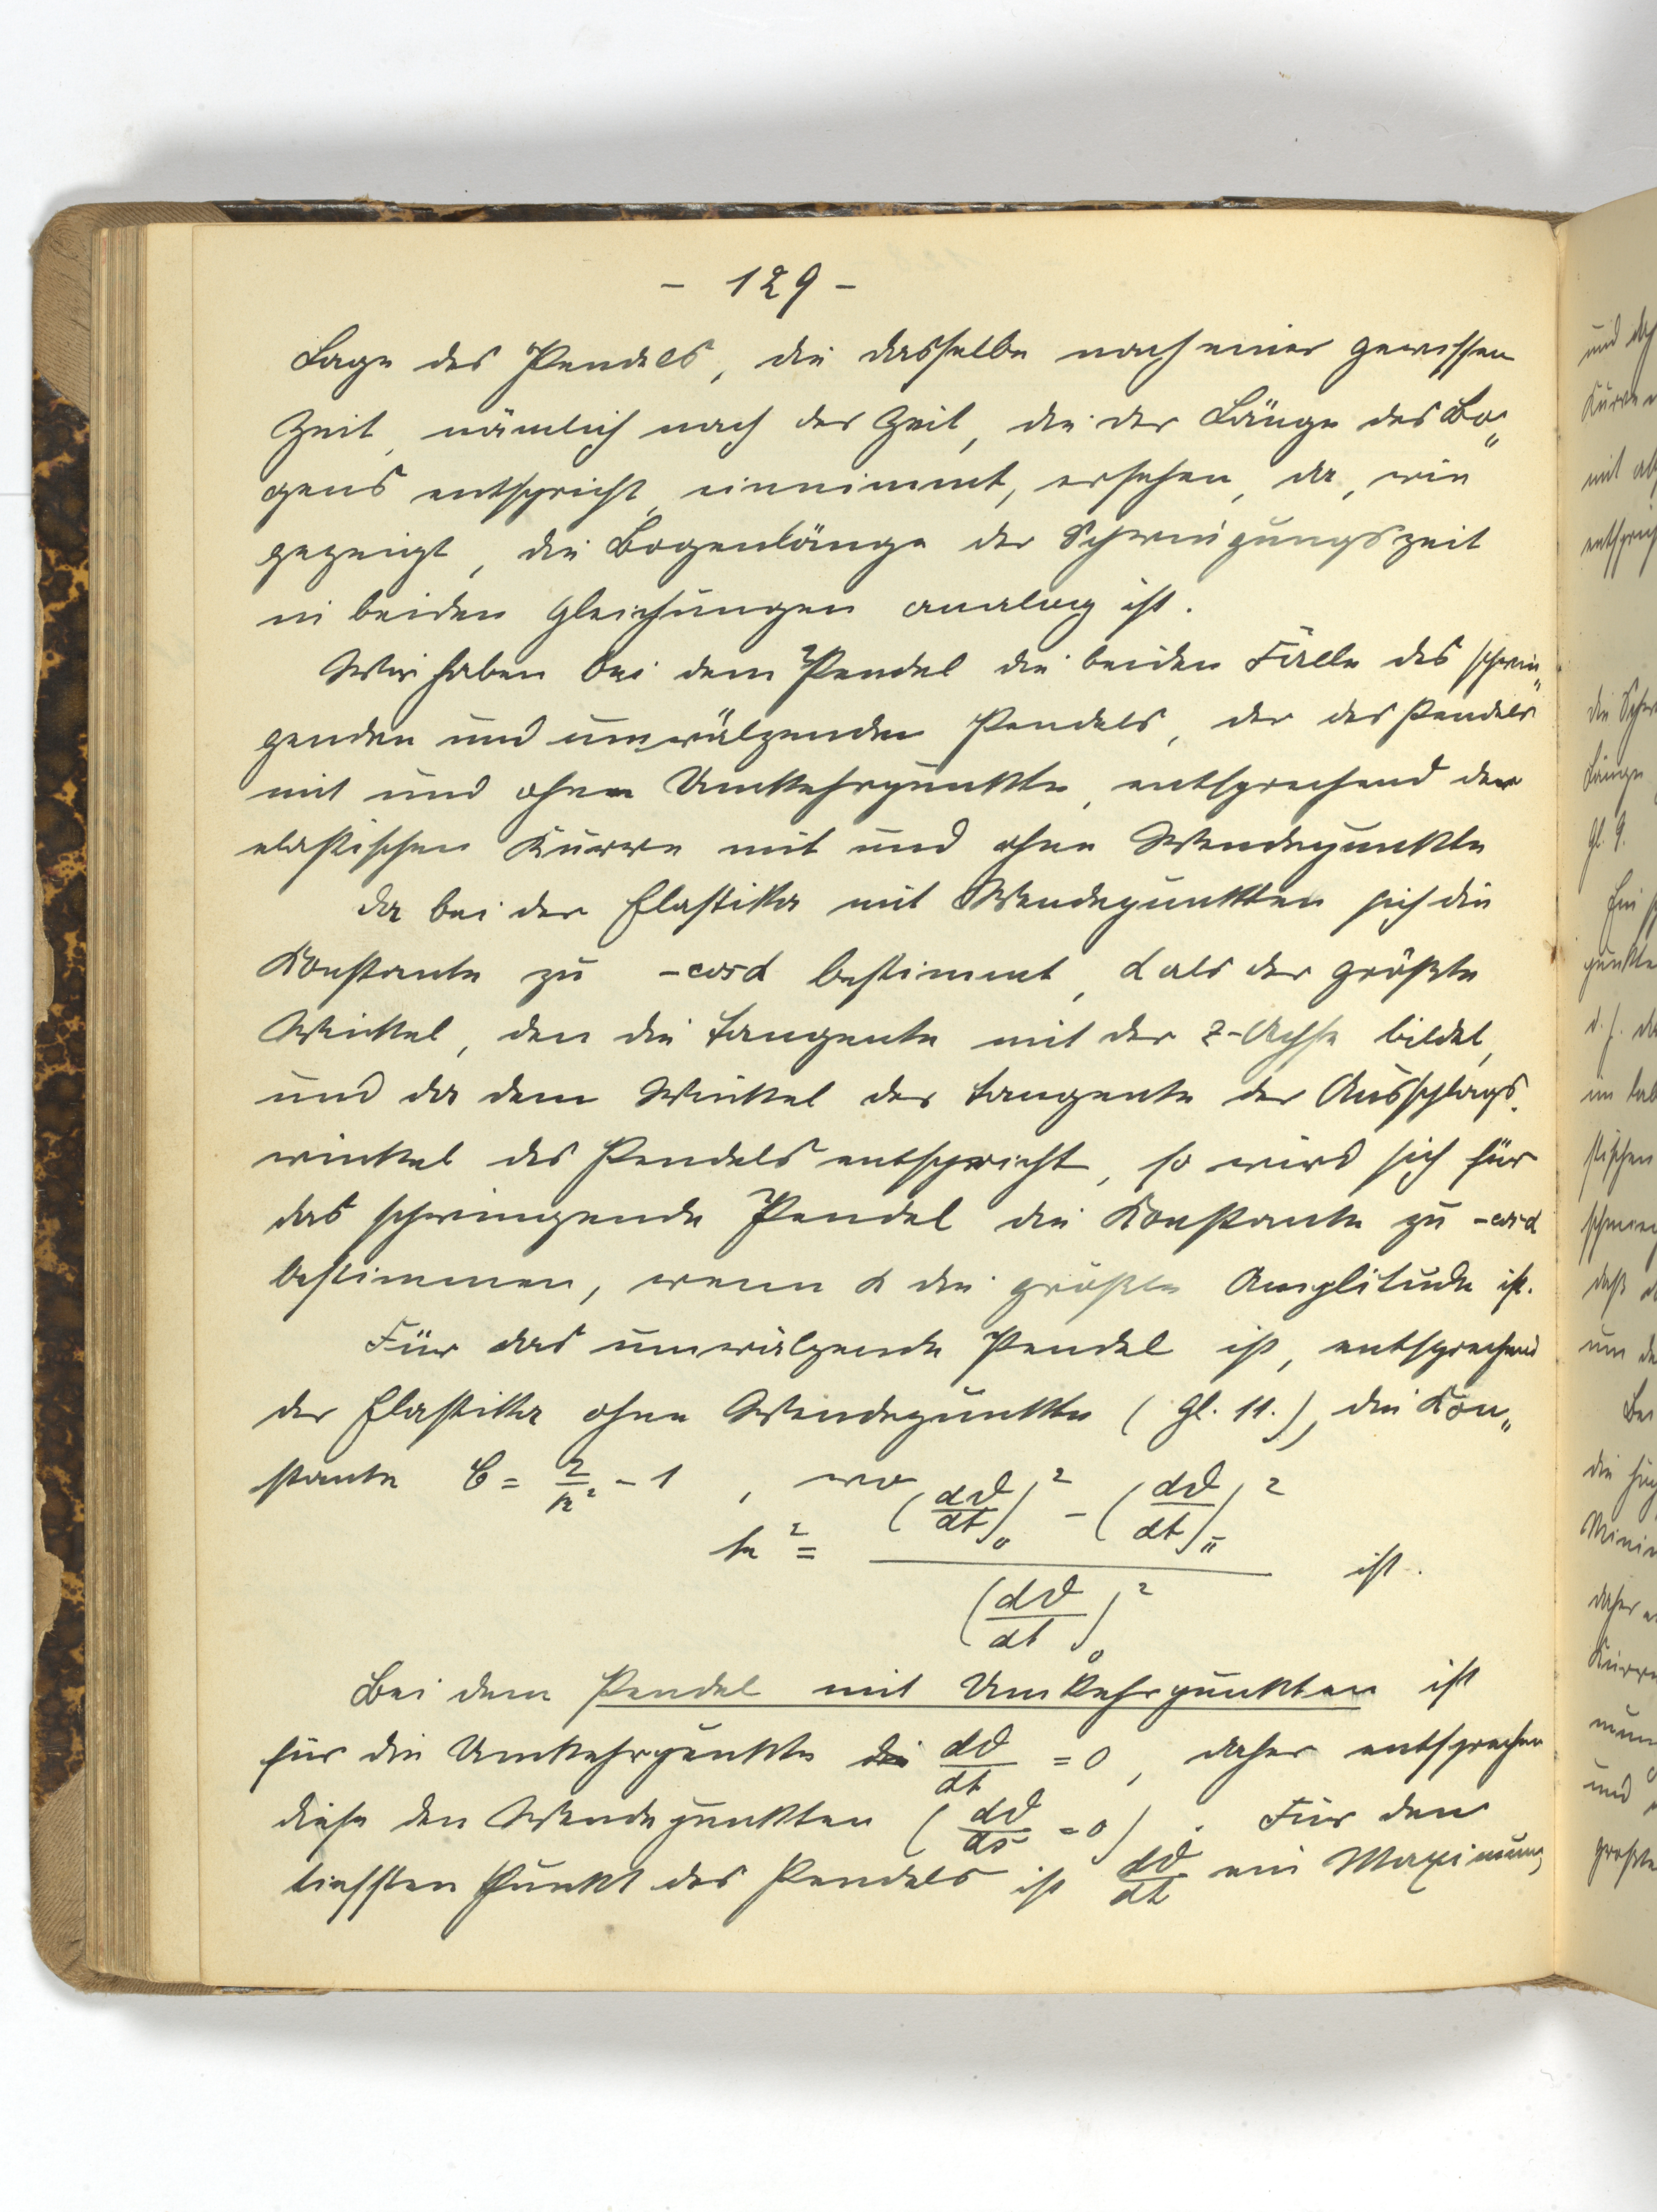 - 129 -
Lage des Pendels, die dasselbe nach einer gewissen
Zeit, nämlich nach der Zeit, die der Länge des Bo„
gens entspricht, einnimmt, ersehen, da, wie
gezeigt, die Bogenlänge der Schwingungszeit
in beiden Gleichungen analog ist.
Wir haben bei dem Pendel die beiden Fälle des schwin„
genden und umwälzenden Pendels, der des Pendels
mit und ohne Umkehrpunkte, entsprechend der
elastischen Kurve mit und ohne Wendepunkte
Da bei der Elastika mit Wendepunkten sich die
Konstante zu -cosα bestimmt, α als der größte
Winkel, den die Tangente mit der z-Achse bildet,
und da dem Winkel der Tangente der Ausschlags-
winkel des Pendels entspricht, so wird sich für
das schwingende Pendel die Konstante zu -cosα
bestimmen, wenn α die größte Amplitude ist.
Für das umwälzende Pendel ist, entsprechend
der Elastika ohne Wendepunkte (Gl. 11.), die Kon„
stante C = 2/k² - 1 , wo
k² = ((dϑ/dt)₀² - (dϑ/dt)π²) / (dϑ/dt)₀² ist.
Bei dem Pendel mit Umkehrpunkten ist
für die Umkehrpunkte die dϑ/dt = 0, daher entsprechen
diese den Wendepunkten (dϑ/ds = 0). Für den
tiefsten Punkt des Pendels ist dϑ/dt ein Maximum,
und
Kurven
mit
die
Länge
Gl. 9.
Ein
punkte
d. h.
im
stischen
daß
um
Bei
die
daher
und
größte